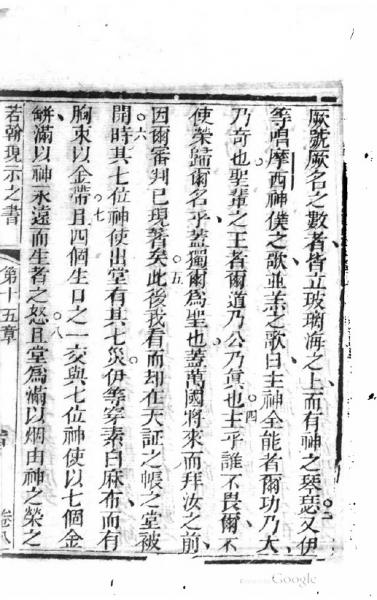 厥號厥名之數者皆立玻璃海之上而有神之琴瑟又伊
等唱摩西神僕之歌並羔之歌曰主神全能者爾功乃大
乃奇也聖輩之王者爾道乃公乃真也主乎誰不畏爾不
使榮歸爾名乎蓋獨爾為聖也蓋萬國將來而拜汝之前
因爾審判已現著矣此後我看而却在天証之帳之堂被
開時其七位神使出堂有其七災伊等穿素白麻布而有
胸束以金帶且四個生口之一交與七位神使以七個金
缾滿以神永遠而生者之怒且堂為滿以烟由神之榮之
若翰現示之書 第十五章
二
四
五
六
七
八
Google